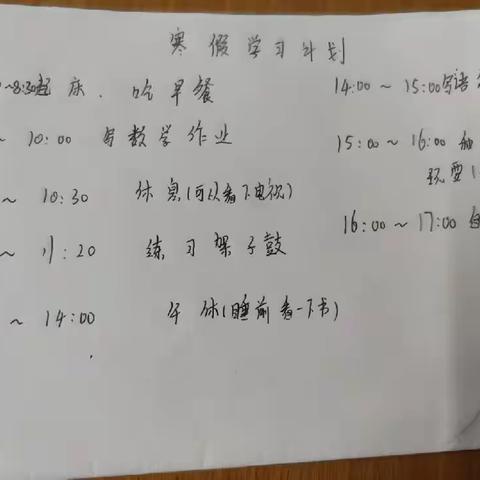 寒假学习计划
~8:30起床、吃早餐
~ 10:00 写数学作业
~ 10:30 休息(可以看下电视)
~ 11:20 练习架子鼓
~ 14:00 午休(睡前看一下书)
14:00 ~ 15:00写语
15:00 ~ 16:00 和
玩耍
16:00 ~ 17:00